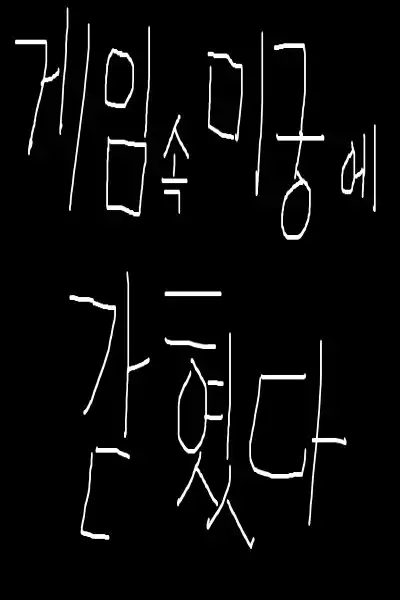 게임속 미궁에
갇혔다